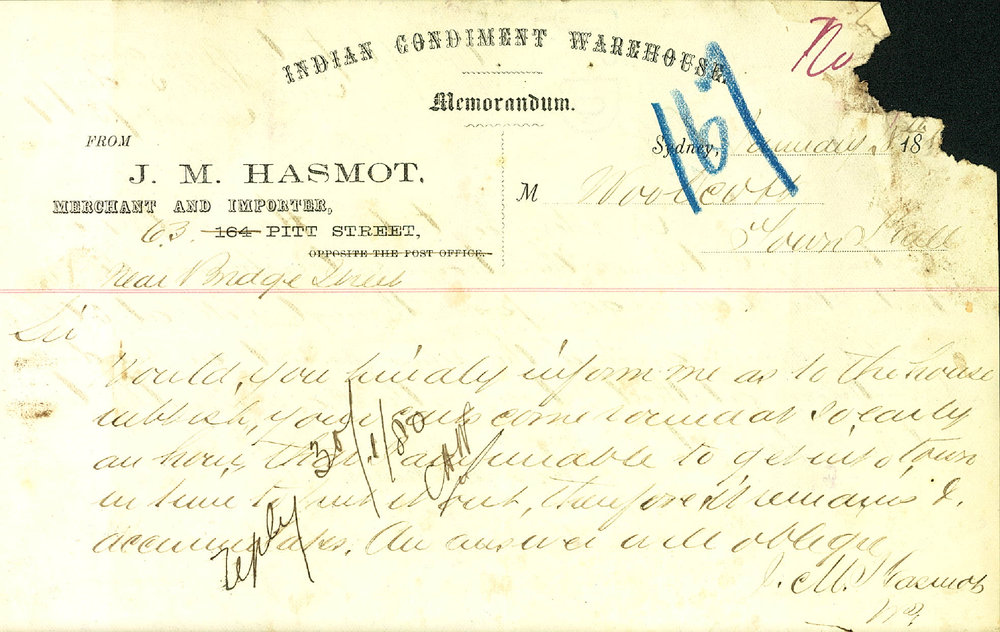 INDIAN CONDIMENT WAREHOUSE.
No
167
Memorandum.
FROM
Sydney, January 18
J. M. HASMOT,
M Woolcott
MERCHANT AND IMPORTER,
Town Hall
63 164 PITT STREET,
OPPOSITE THE POST OFFICE.
near Bridge Street
Sir
Would you kindly inform me as to the house
rubbish, your come round at so early
an hour, that I am unable to get into town
in time to put it out, therefore it remains &
accumulates. An answer will oblige
J. M. Hasmot
reply 30/1/80